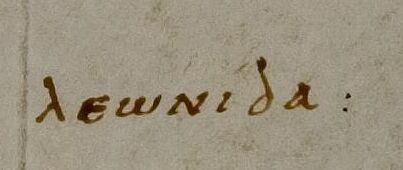 λεωνιδα :